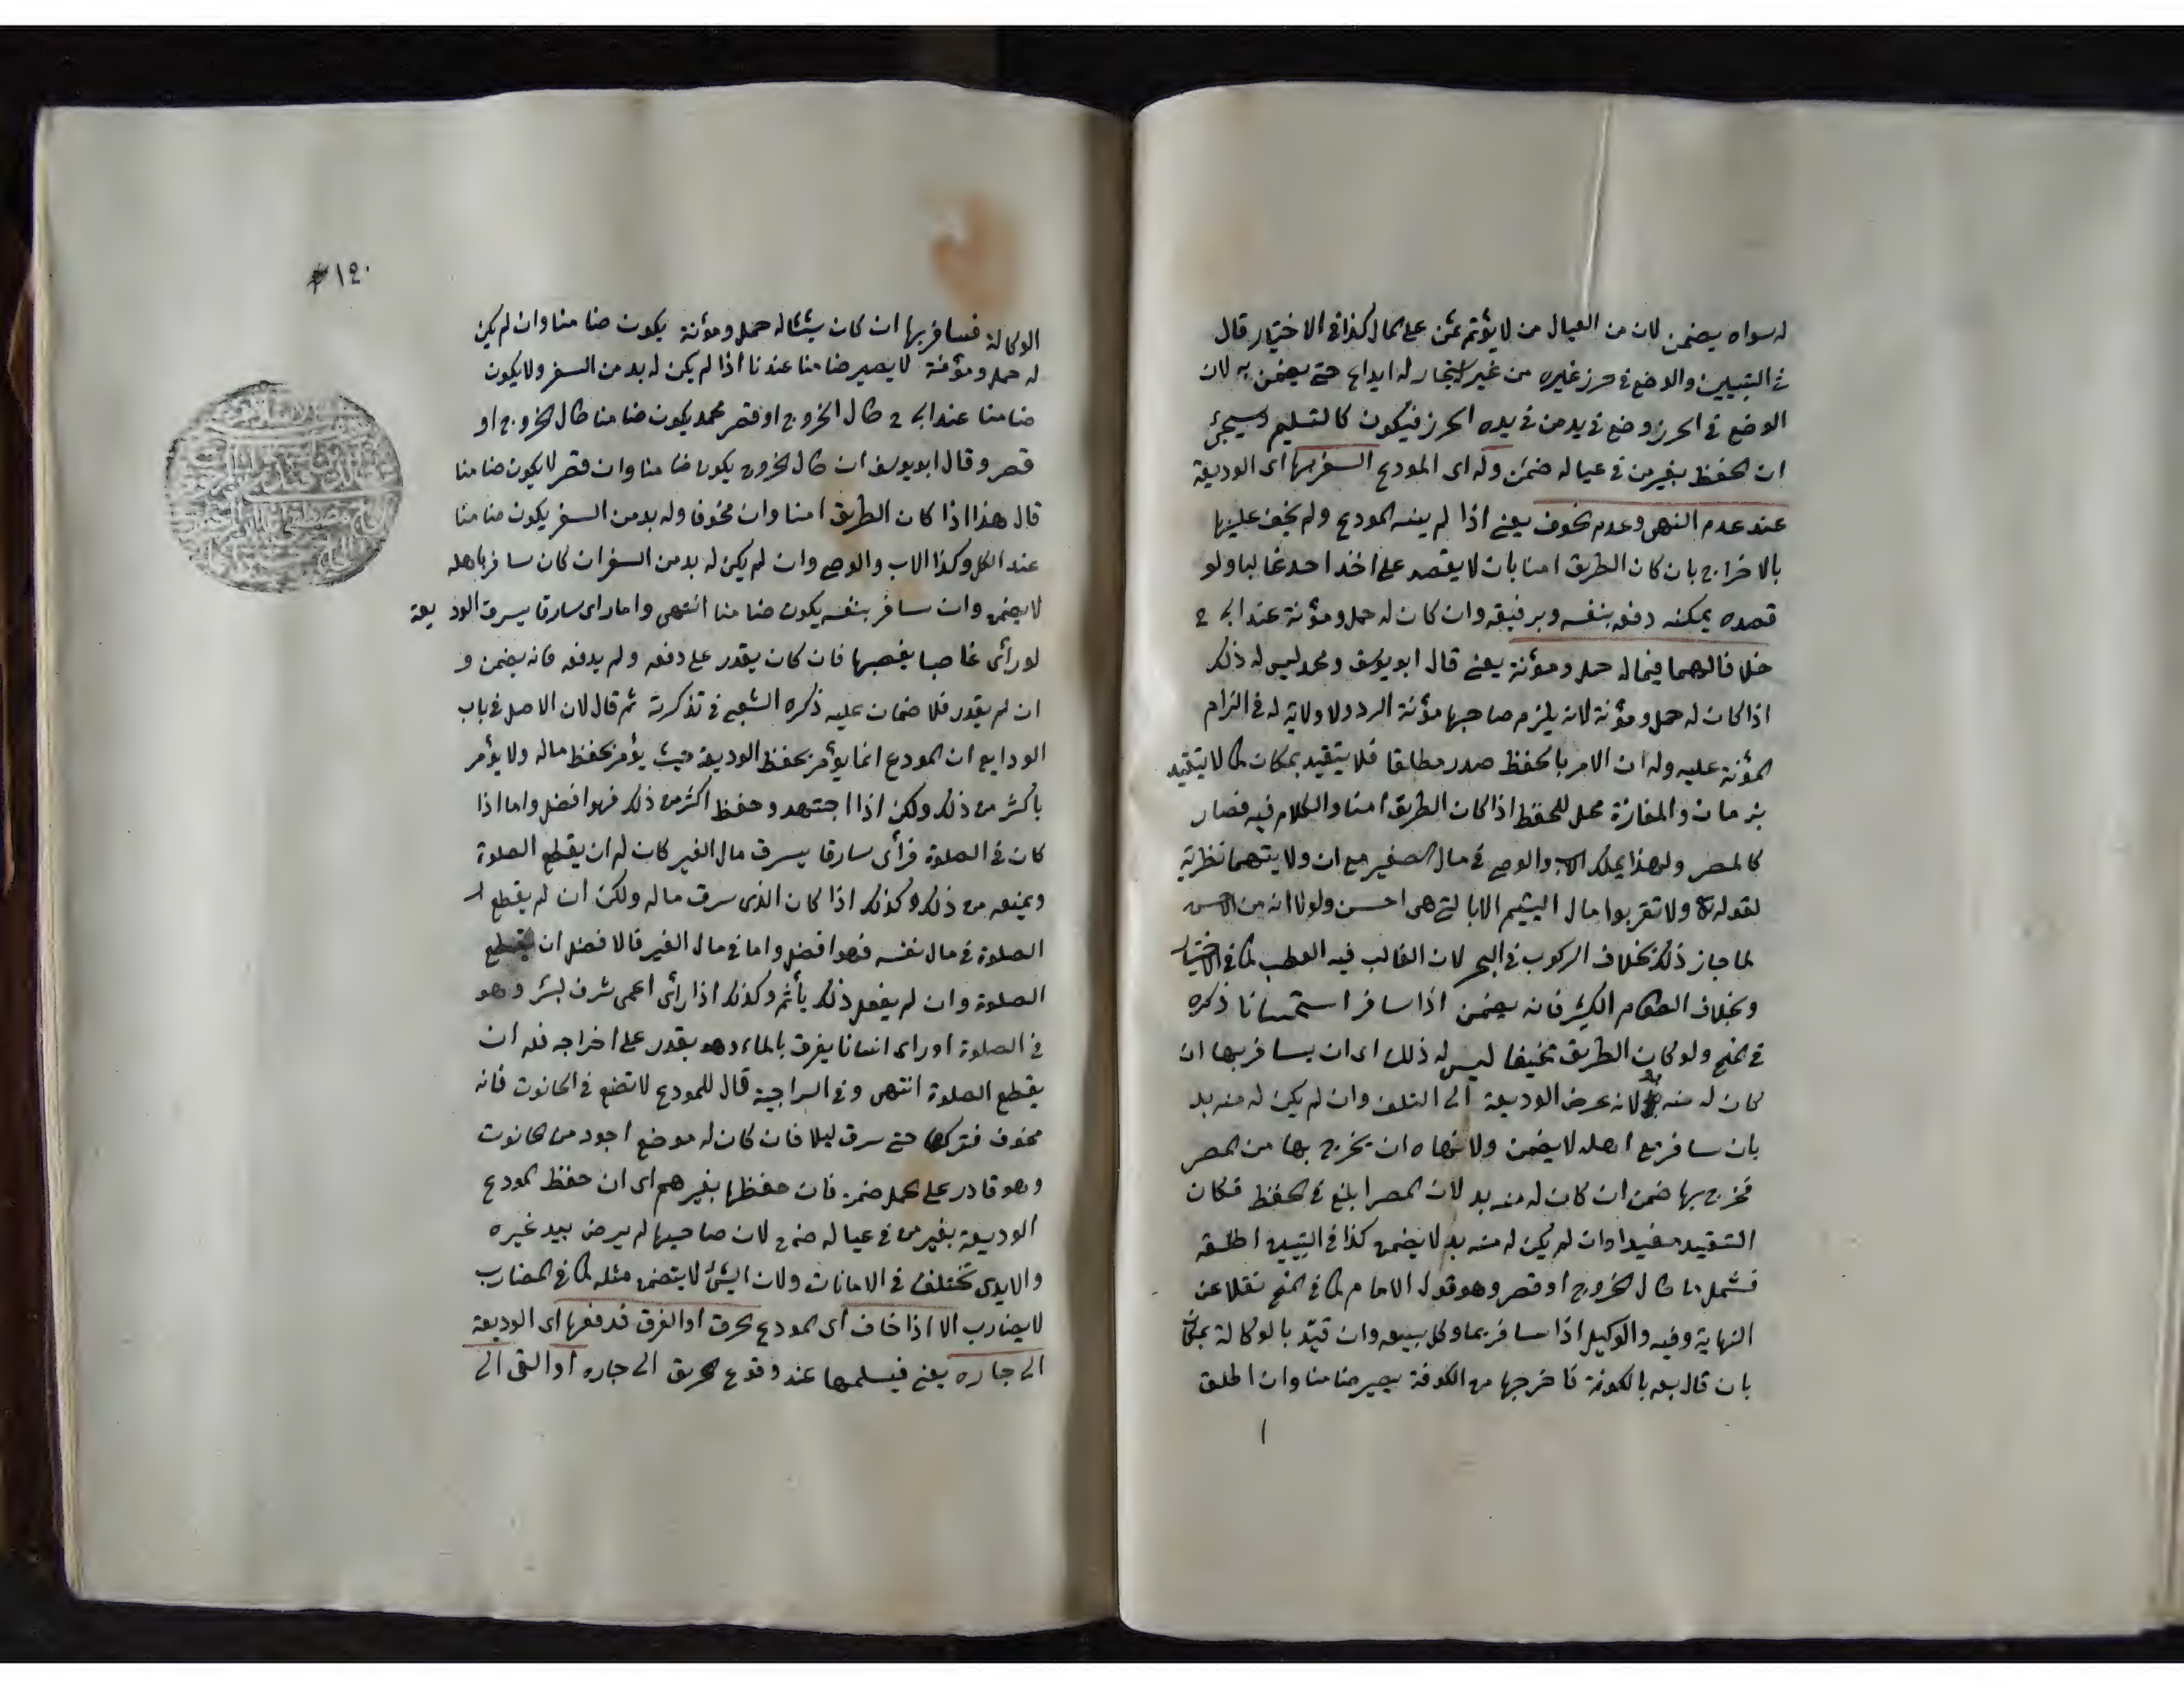 له سواه يضمن لان من العيال من لا يؤتمن على المال كذا في الاختيار قال
في التبيين والوضع في حرز غيره من غير استيجار له ايداع حتى يضمن به لان
الوضع في الحرز وضع في يد من في يده الحرز فيكون كالتسليم وسيجئ
ان الحفظ بغير من في عياله ضمن وله اى المودع السفر بها اى الوديعة
عند عدم النهى وعدم الخوف يعنى اذا لم ينهه المودع ولم يخف عليها
بالاخراج بان كان الطريق امنا بان لا يقصد على اخذ احد غالبا ولو
قصده يمكنه دفعه بنفسه وبرفيقه وان كان له حمل ومؤنة عند ابى ح
خلافا لهما فيما له حمل ومؤنة يعنى قال ابو يوسف ومحمد ليس له ذلك
اذا كان له حمل ومؤنة لانه يلزم صاحبها مؤنة الرد ولا ولاية له في الزام
المؤنة عليه وله ان الامر بالحفظ صدر مطلقا فلا يتقيد بمكان كما لا يتقيد
بزمان والمفازة محل للحفظ اذا كان الطريق امنا والكلام فيه فصار
كالمصر ولهذا يملك الاب والوصى في مال الصغير مع ان ولايتهما نظرية
لقوله تعا ولا تقربوا مال اليتيم الا بالتى هى احسن ولولا انه من الاحسن
لما جاز ذلك بخلاف الركوب في البحر لان الغالب فيه العطب كما في الاختيار
وبخلاف الطعام الكثير فانه يضمن اذا سافر استحسانا ذكره
في المنح ولو كان الطريق مخيفا ليس له ذلك اى ان يسافر بها ان
كان له منه بد لانه عرض الوديعة الى التلف وان لم يكن له منه بد
بان سافر مع اهله لا يضمن ولو نهاه ان يخرج بها من المصر
فخرج بها ضمن ان كان له منه بد لان المصر ابلغ في الحفظ فكان
التقييد مفيدا وان لم يكن له منه بد لا يضمن كذا في التبيين اطلقه
فشمل ما طال الخروج او قصر وهو قول الامام كما في المنح نقلا عن
النهاية وفيه والوكيل اذا سافر بما وكل ببيعه وان قيد بالوكالة بمكان
بان قال بعه بالكوفة فاخرجها من الكوفة يصير ضامنا وان اطلق
١٤٠
الوكالة فسافر بها ان كان شيئا له حمل ومؤنة يكون ضامنا وان لم يكن
له حمل ومؤنة لا يصير ضامنا عندنا اذا لم يكن له بد من السفر ولا يكون
ضامنا عند ابى ح طال الخروج او قصر محمد يكون ضامنا طال الخروج او
قصر وقال ابو يوسف ان طال الخروج يكون ضامنا وان قصر لا يكون ضامنا
قال هذا اذا كان الطريق امنا وان مخوفا وله بد من السفر يكون ضامنا
عند الكل وكذا الاب والوصى وان لم يكن له بد من السفر ان كان سافر باهله
لا يضمن وان سافر بنفسه يكون ضامنا انتهى واما راى سارقا يسرق الوديعة
لو رأى غاصبا يغصبها فان كان يقدر على دفعه ولم يدفعه فانه يضمن و
ان لم يقدر فلا ضمان عليه ذكره الشعبى في تذكرته ثم قال لان الاصل في باب
الودايع ان المودع انما يؤمر بحفظ الوديعة حيث يؤمر بحفظ ماله ولا يؤمر
باكثر من ذلك ولكن اذا اجتهد وحفظ اكثر من ذلك فهو افضل واما اذا
كان في الصلوة فرأى سارقا يسرق مال الغير كان له ان يقطع الصلوة
ويمنعه من ذلك وكذلك اذا كان الذى سرق ماله ولكن ان لم يقطع
الصلوة في مال نفسه فهو افضل واما في مال الغير فالافضل ان يقطع
الصلوة وان لم يفعل ذلك يأثم وكذلك اذا رأى اعمى شرف لبئر وهو
في الصلوة او راى انسانا يغرق بالماء وهو يقدر على اخراجه فله ان
يقطع الصلوة انتهى وفي السراجية قال للمودع لا تضع في الحانوت فانه
مخوف فتركها حتى سرق ليلا فان كان له موضع اجود من الحانوت
وهو قادر على الحمل ضمن فان حفظها بغيرهم اى ان حفظ المودع
الوديعة بغير من في عياله ضمن لان صاحبها لم يرض بيد غيره
والايدى تختلف في الامانات ولان الشئ لا يتضمن مثله كما في المضارب
لا يضارب الا اذا خاف اى المودع الحرق او الغرق فدفعها اى الوديعة
الى جاره يعنى فيسلمها عند وقوع الحريق الى جاره او القى الى